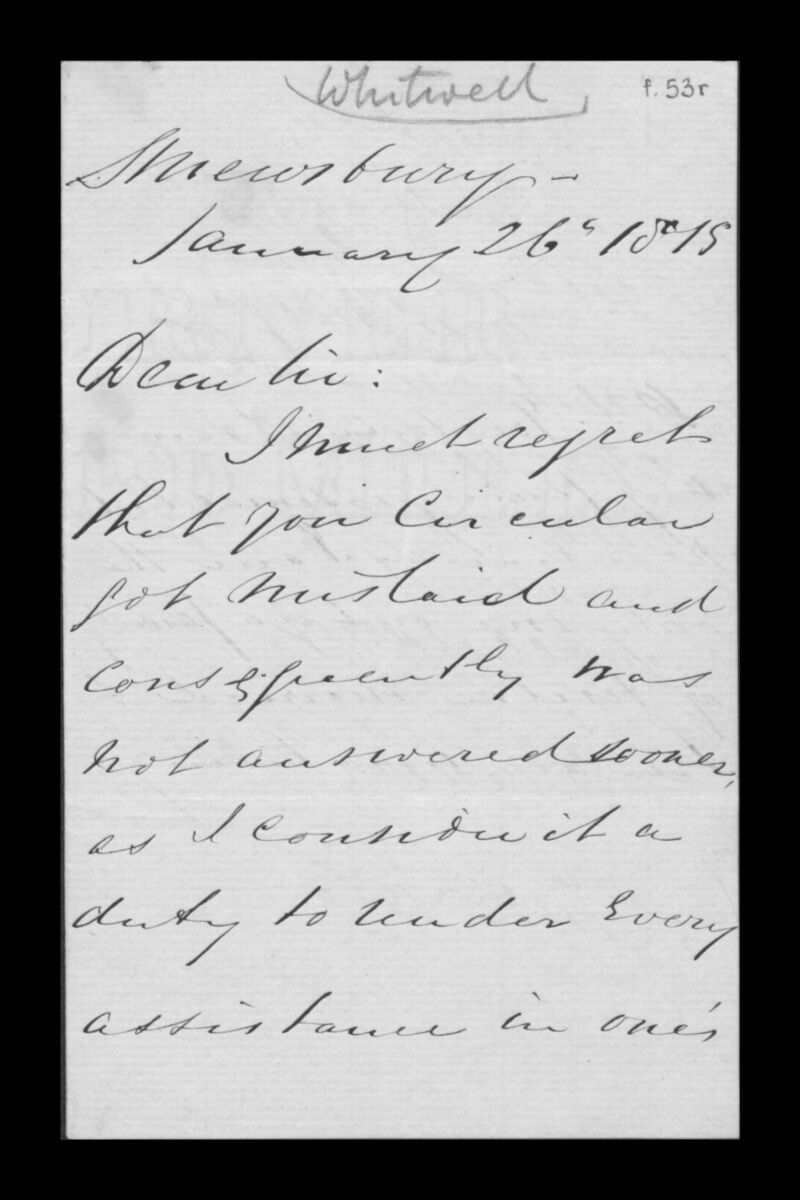 Whitwell
f. 53r
Shrewsbury -
January 26th 1875
Dear Sir:
I much regret
that your Circular
got mislaid and
consequently was
not answered sooner,
as I consider it a
duty to render Every
assistance in one's